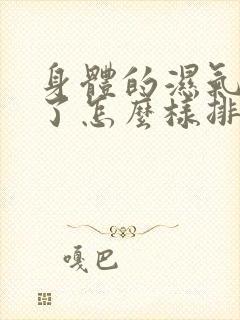 身體的濕氣
了怎麼樣排
嘎巴